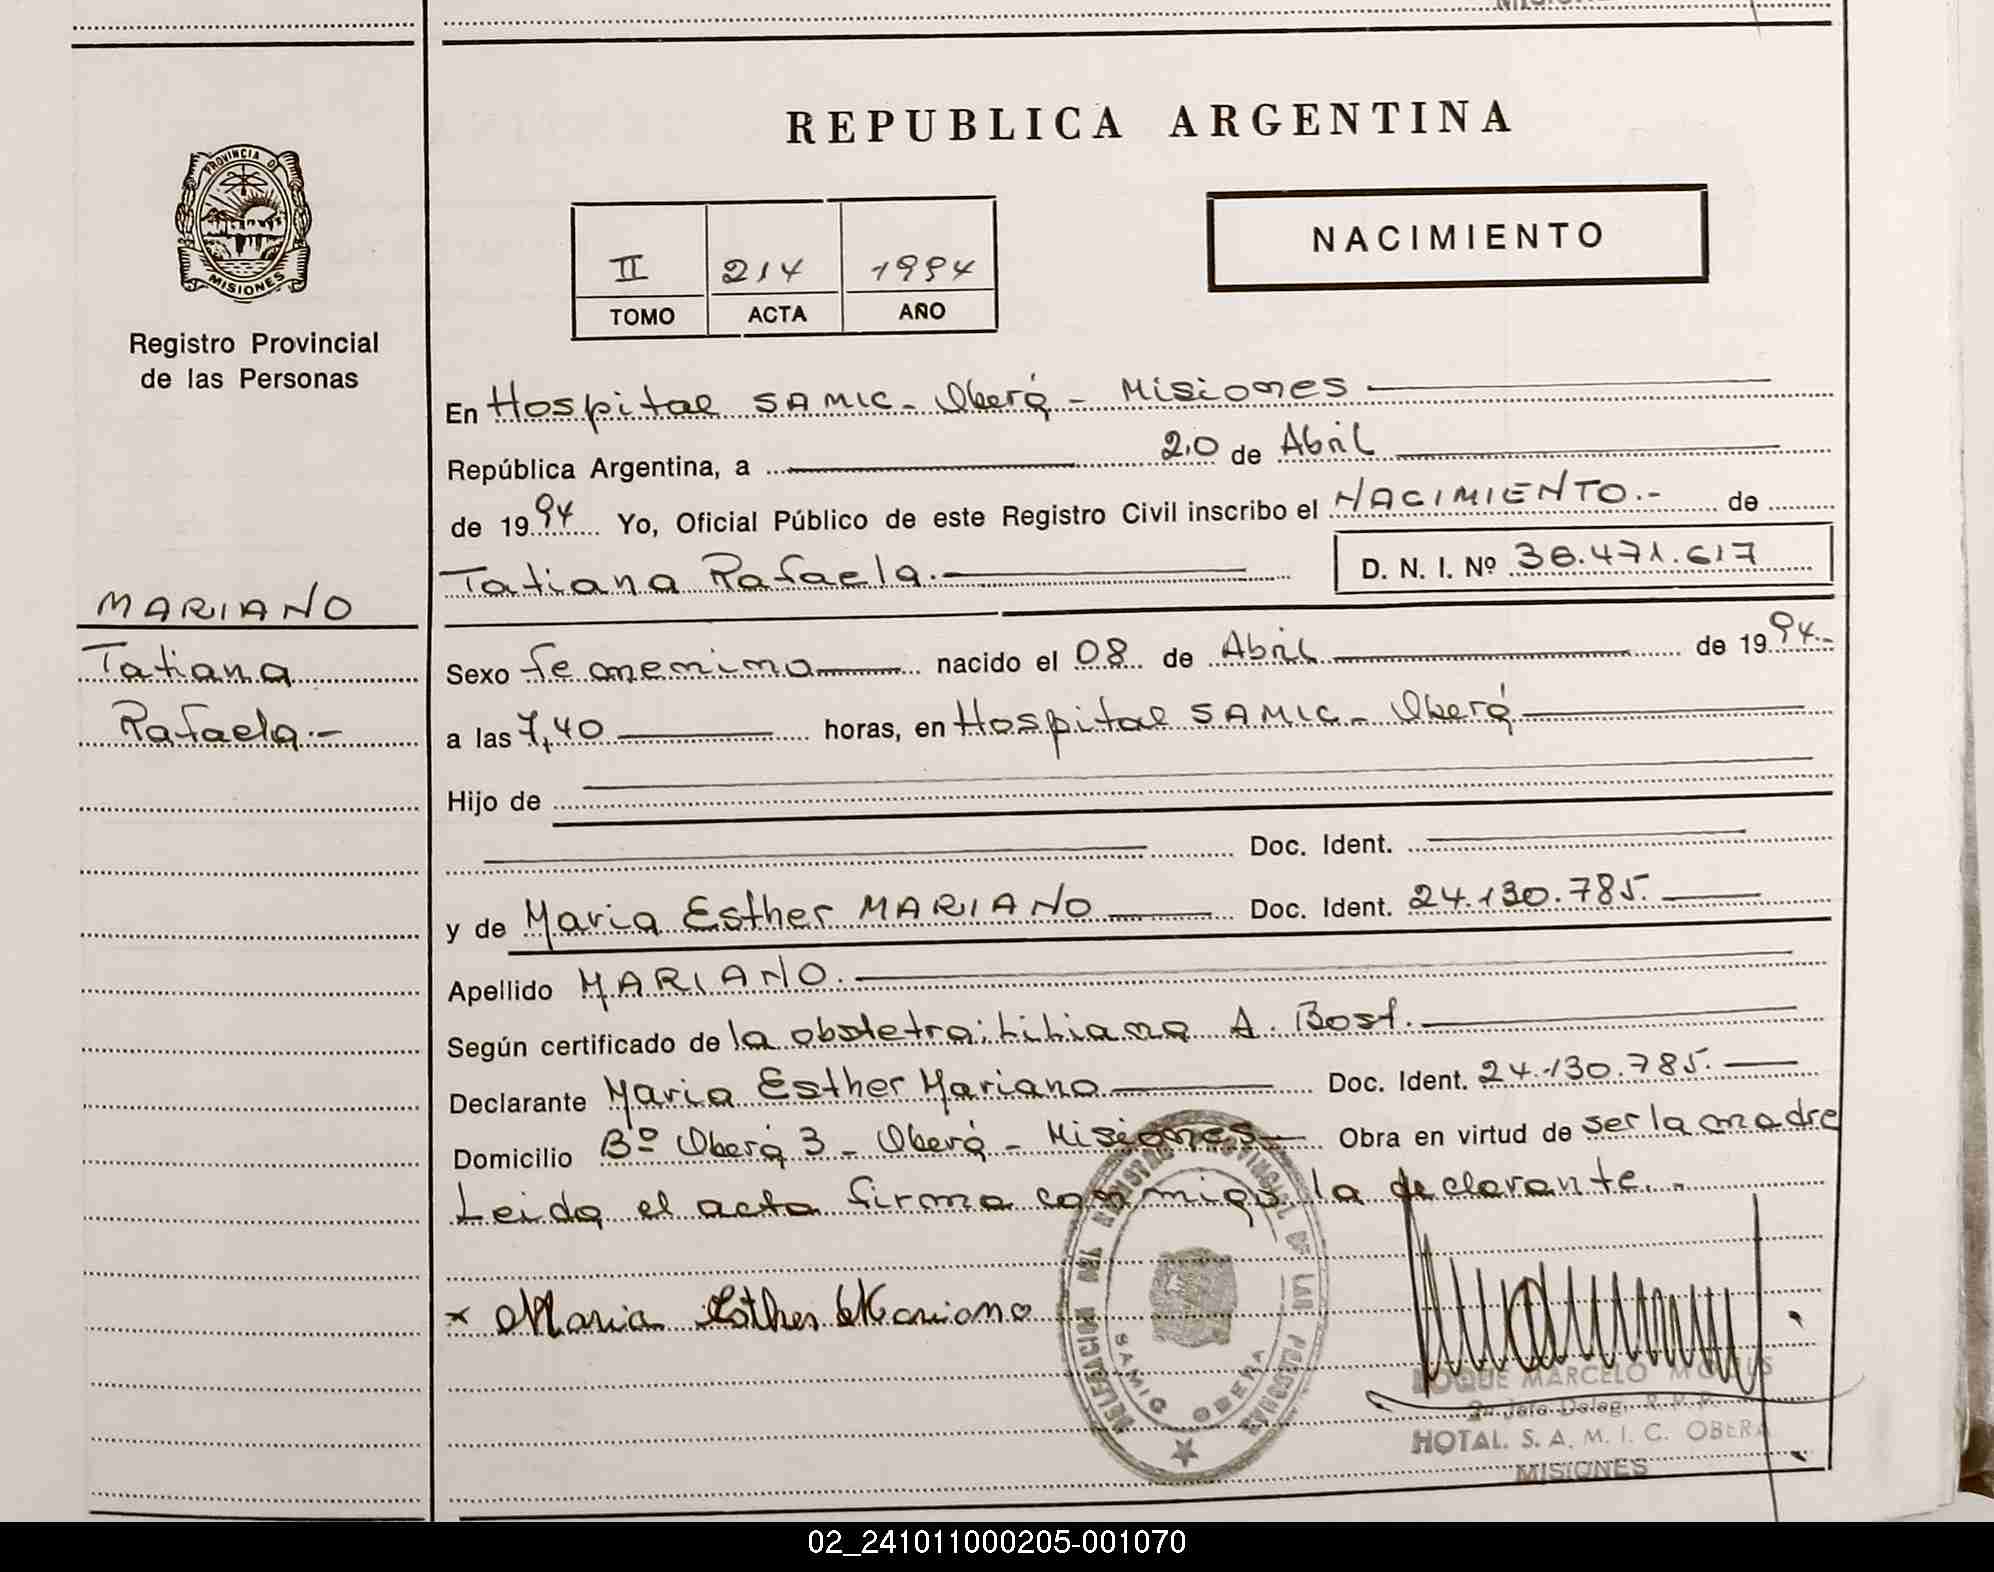 REPUBLICA ARGENTINA
PROVINCIA D
MISIONES
Registro Provincial
de las Personas
II 214 1994
TOMO ACTA AÑO
NACIMIENTO
En Hospital SAMIC - Oberá - Misiones
República Argentina, a 20 de Abril
de 1994 Yo, Oficial Público de este Registro Civil inscribo el NACIMIENTO.- de
Tatiana Rafaela.- D. N. I. Nº 38.471.617
MARIANO
Tatiana
Rafaela.-
Sexo femenino nacido el 08 de Abril de 1994.-
a las 7,40 horas, en Hospital SAMIC - Oberá
Hijo de
Doc. Ident.
y de Maria Esther MARIANO Doc. Ident. 24.130.785.
Apellido MARIANO.
Según certificado de la obstetra: Liliana A. Bost.
Declarante Maria Esther Mariano Doc. Ident. 24.130.785.
Domicilio Bº Oberá 3 - Oberá - Misiones Obra en virtud de ser la madre
Leida el acta firma conmigo la declarante.-
x Maria Esther Mariano
DELEGACION DEL REGISTRO PROVINCIAL DE LAS PERSONAS
SAMIC OBERA
ROQUE MARCELO
2º Jefe Deleg. R.P.P.
HOTAL. S. A. M. I. C. OBERA
MISIONES
02_241011000205-001070